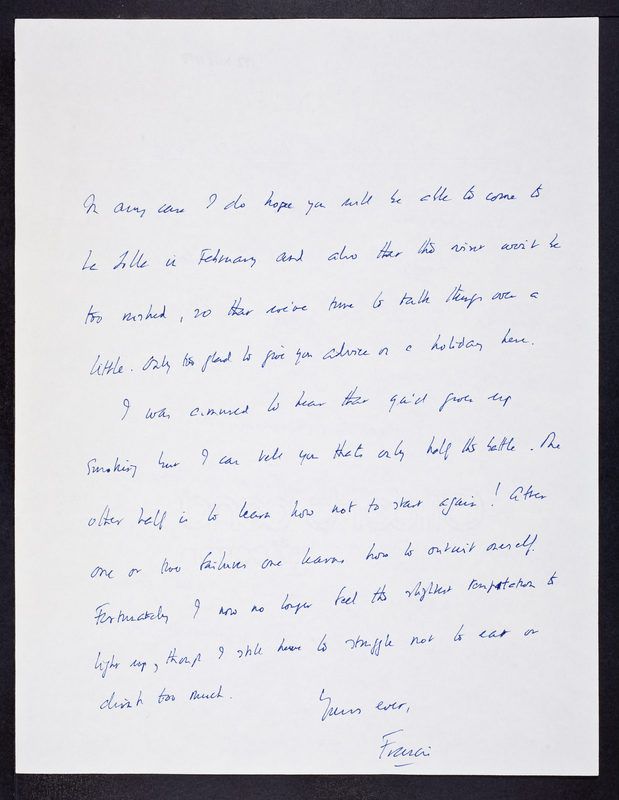 In any case I do hope you will be able to come to
La Jolla in February and also that the visit won't be
too rushed, so that we've time to talk things over a
little. Only too glad to give you advice on a holiday here.
I was amused to hear that you'd given up
smoking but I can tell you that's only half the battle. The
other half is to learn how not to start again! After
one or two failures one learns how to outwit oneself.
Fortunately I now no longer feel the slightest temptation to
light up, though I still have to struggle not to eat or
drink too much.
Yours ever,
Francis